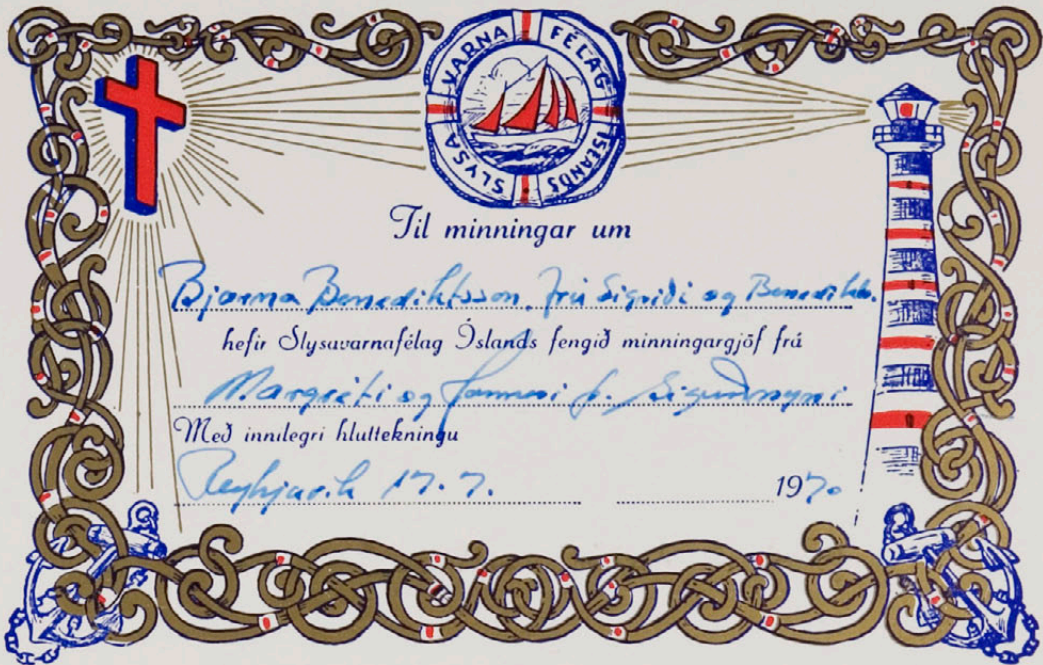 SLYSA VARNA FÉLAG ÍSLANDS
Til minningar um
Bjarna Benediktsson, frú Sigríði og Benedikt.
hefir Slysavarnafélag Íslands fengið minningargjöf frá
Margréti og Hannesi Þ. Sigurðssyni
Með innilegri hluttekningu
Reykjavík 17. 7. 1970